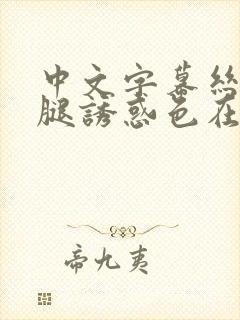 中文字幕絲
腿誘惑色在
帝九夷